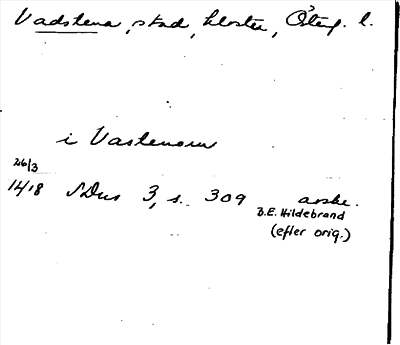 Vadstena, stad, kloster, Österg. l.
i Vastenom
26/3
1418 SDns 3, s. 309 avskr.
B.E. Hildebrand
(efter orig.)